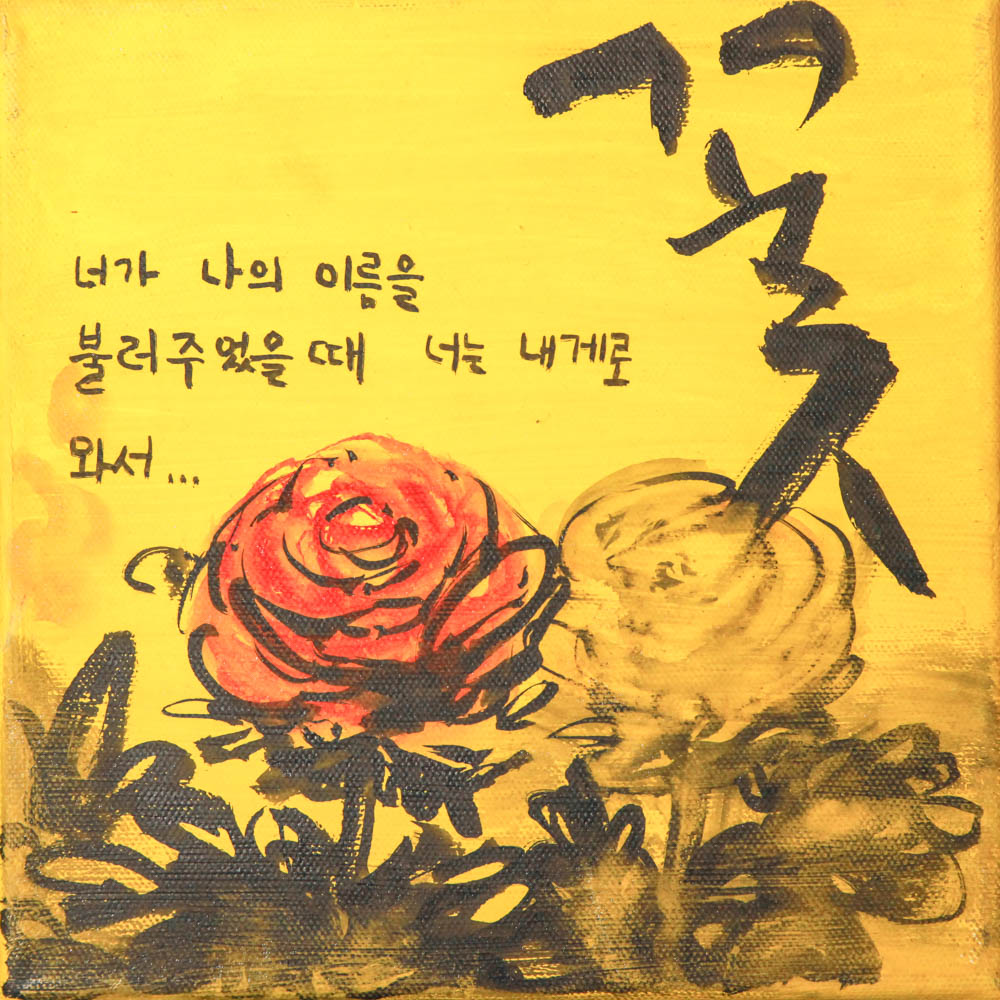 꽃
너가 나의 이름을
불러주었을 때 너는 내게로
와서...